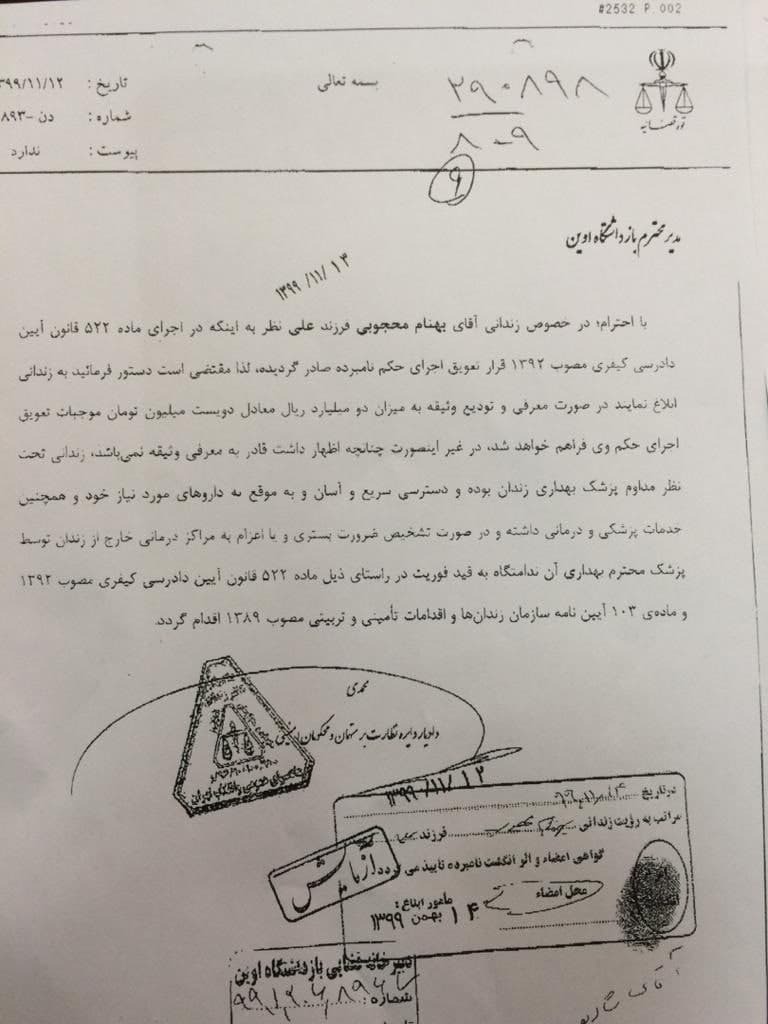 #2532 P.002
قوه قضائیه
۲۹۰۸۹۸
بسمه تعالی
تاریخ : ۳۹۹/۱۱/۱۲
۸-۰۹
شماره : دن -۸۹۳
۹
پیوست : ندارد
مدیر محترم بازداشتگاه اوین
۱۳۹۹/۱۱/۱۳
با احترام؛ در خصوص زندانی آقای بهنام محجوبی فرزند علی نظر به اینکه در اجرای ماده ۵۲۲ قانون آیین
دادرسی کیفری مصوب ۱۳۹۲ قرار تعویق اجرای حکم نامبرده صادر گردیده، لذا مقتضی است دستور فرمائید به زندانی
ابلاغ نمایند در صورت معرفی و تودیع وثیقه به میزان دو میلیارد ریال معادل دویست میلیون تومان موجبات تعویق
اجرای حکم وی فراهم خواهد شد، در غیر اینصورت چنانچه اظهار داشت قادر به معرفی وثیقه نمی‌باشد، زندانی تحت
نظر مداوم پزشک بهداری زندان بوده و دسترسی سریع و آسان و به موقع به داروهای مورد نیاز خود و همچنین
خدمات پزشکی و درمانی داشته و در صورت تشخیص ضرورت بستری و یا اعزام به مراکز درمانی خارج از زندان توسط
پزشک محترم بهداری آن ندامتگاه به قید فوریت در راستای ذیل ماده ۵۲۲ قانون آیین دادرسی کیفری مصوب ۱۳۹۲
و ماده‌ی ۱۰۳ آیین نامه سازمان زندان‌ها و اقدامات تأمینی و تربیتی مصوب ۱۳۸۹ اقدام گردد.
محمدی
دادیار دایره نظارت بر متهمان و محکومان امنیتی
دادسرای عمومی و انقلاب تهران
۱۳۹۹/۱۱/۱۲
در تاریخ
مراتب به رؤیت زندانی فرزند
گواهی امضاء و اثر انگشت نامبرده تایید می گردد
محل امضاء
مأمور ابلاغ :
۱۴ بهمن ۱۳۹۹
بازداشتگاه اوین
شماره :
آقای